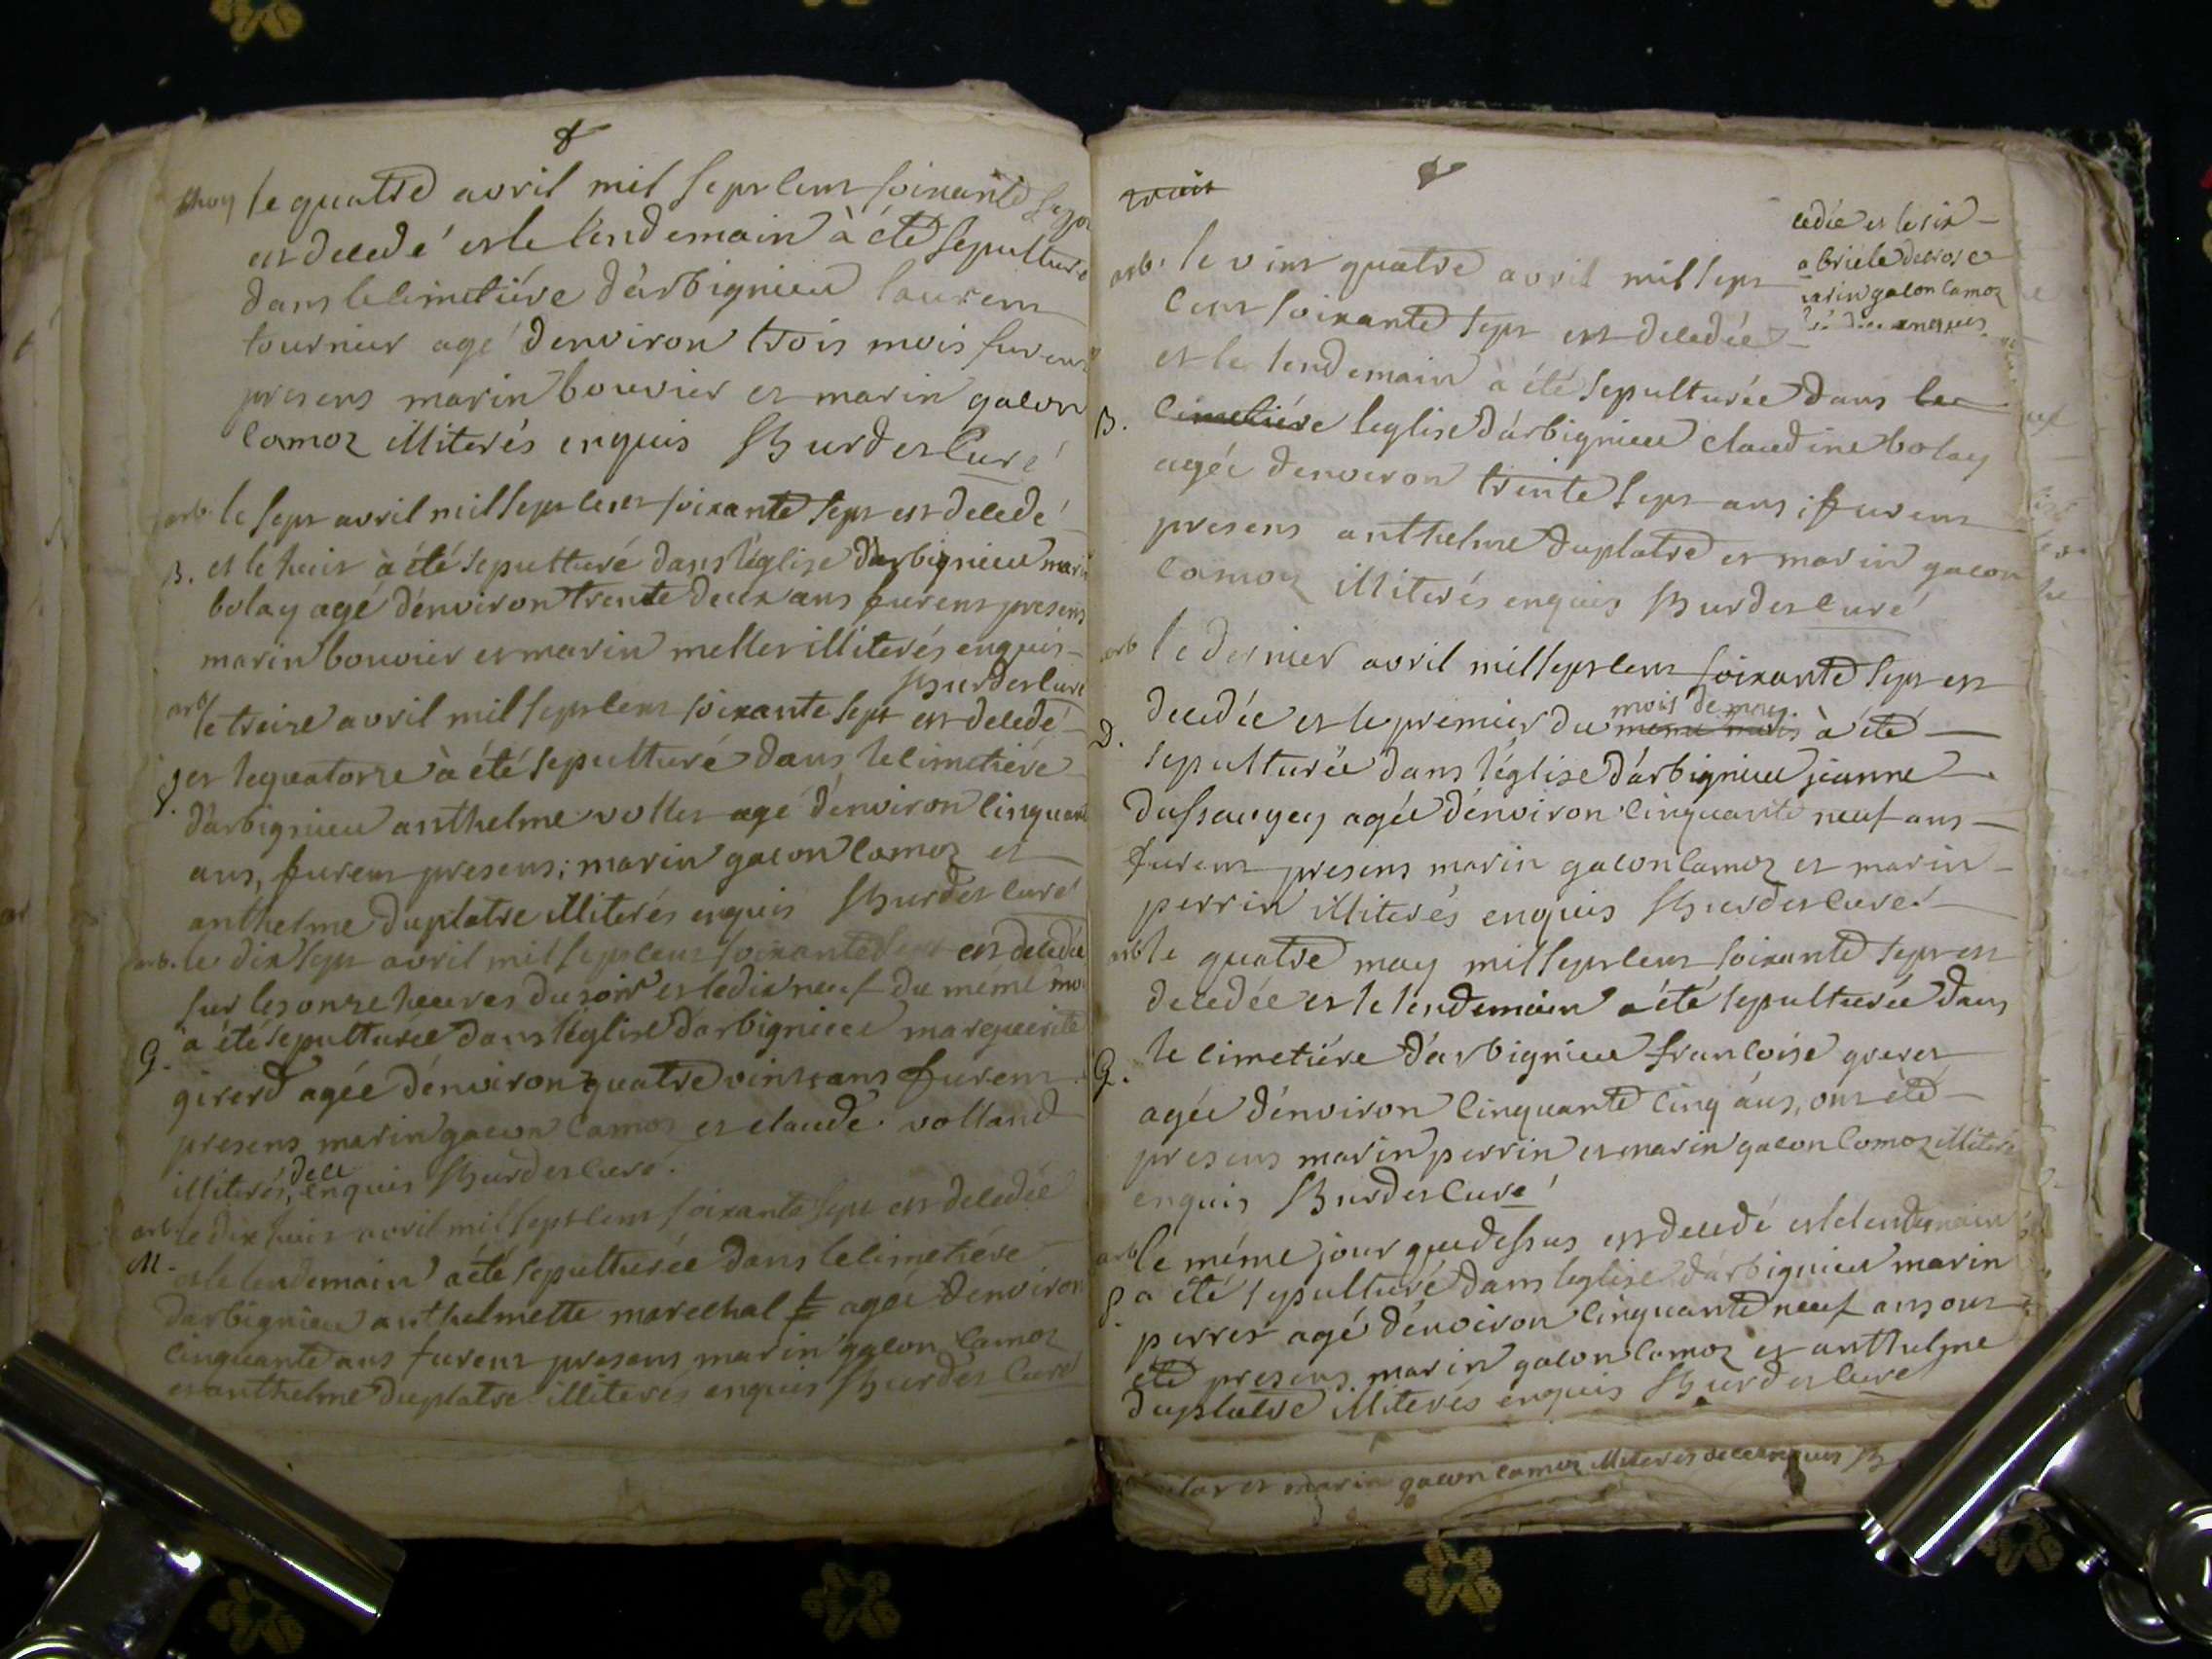 le quatre avril mil sept cent soixante sept
est decedé et le lendemain à été sepulturé
dans le cimetiére d'arbignieu laurent
tournier agé d'environ trois mois furent
presens marin bouvier et marin gacon
camoz illiterés enquis JBurdet Curé
arb. le sept avril mil sept cent soixante sept est decedé
B. et le huit à été sepulturé dans l'église d'arbignieu marin
bolay agé d'environ trente deux ans furent presens
marin bouvier et marin mellet illiterés enquis
JBurdet Curé
arb le treize avril mil sept cent soixante sept est decedé
et le quatorze à été sepulturé dans le cimetiére
d'arbignieu anthelme vollet agé d'environ cinquante
ans, furent presens; marin gacon camoz et
anthelme duplatre illiterés enquis JBurdet Curé
arb. le dix sept avril mil sept cent soixante sept est decedée
sur les onze heures du soir et le dix neuf du méme moi
G. à été sepulturée dans l'église d'arbignieu marguerite
girerd agée d'environ quatre vint ans furent
presens marin gacon camoz et claude volland
illiterés, de ce enquis JBurdet Curé.
arb le dix huit avril mil sept cent soixante sept est decedée
M. et le lendemain a été sepulturée dans le cimetiére
d'arbignieu anthelmette marechal agée d'environ
cinquante ans furent presens marin gacon camoz
et anthelme duplatre illiterés enquis JBurdet Curé
cedée et le six
abriele derose
marin gacon camoz
enquis
arb. le vint quatre avril mil sept
cent soixante sept est decedée
et le lendemain à été sepulturée dans le
B. cimetiére leglise d'arbignieu claudine bolay
agée d'environ trente sept ans; furent
presens anthelme duplatre et marin gacon
camoz illiterés enquis JBurdet Curé
arb le dernier avril mil sept cent soixante sept est
mois de may
D. decedée et le premier du meme mois à été
sepulturée dans l'église d'arbignieu jeanne
dussaugey agée d'environ cinquante neuf ans
furent presens marin gacon camoz et marin
perrin illiterés enquis JBurdet Curé
arb le quatre may mil sept cent soixante sept est
decedée et le lendemain a été sepulturée dans
G. le cimetiére d'arbignieu francoise gueret
agée d'environ cinquante cinq ans, ont été
presens marin perrin et marin gacon camoz illiterés
enquis JBurdet Curé
arb le méme jour que dessus est decedé et le lendemain
P. a été sepulturé dans leglise d'arbignieu marin
perret agé d'environ cinquante neuf ans ont
été presens marin gacon camoz et anthelme
duplatre illiterés enquis JBurdet Curé
et marin gacon camoz illiterés de ce enquis JB